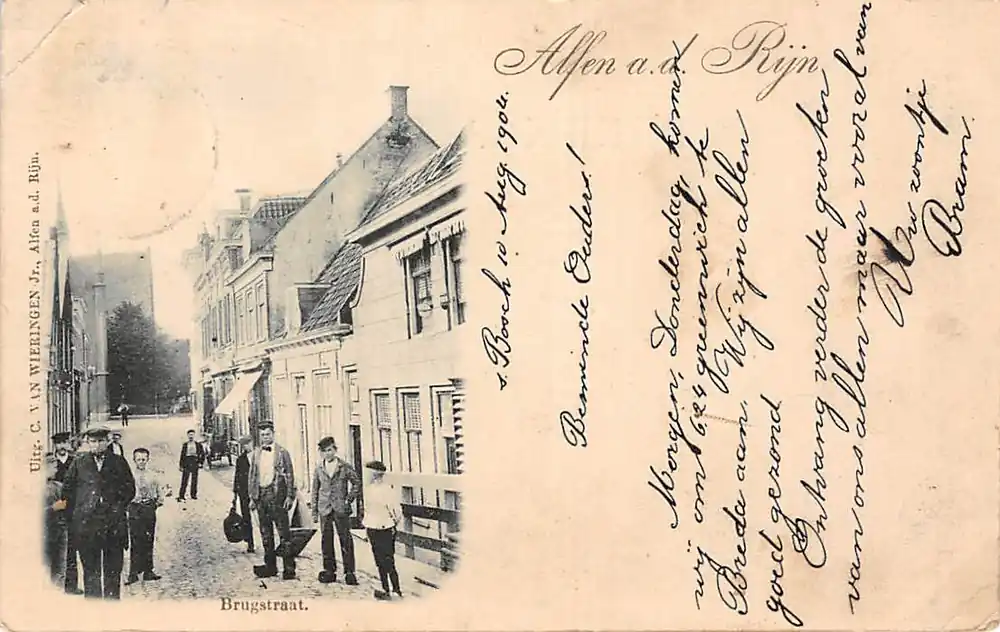 Alfen a.d. Rijn
Uitg. C. VAN WIERINGEN Jr., Alfen a.d. Rijn.
Brugstraat.
s. Bosch 10 Aug. 1904.
Beminde Ouders!
Morgen, Donderdag, komen
wij om 6.24 greenwich te
Breda aan. Wij zijn allen
goed gezond.
Ontvang verder de groeten
van ons allen maar vooral van
Uw zoontje
Bram